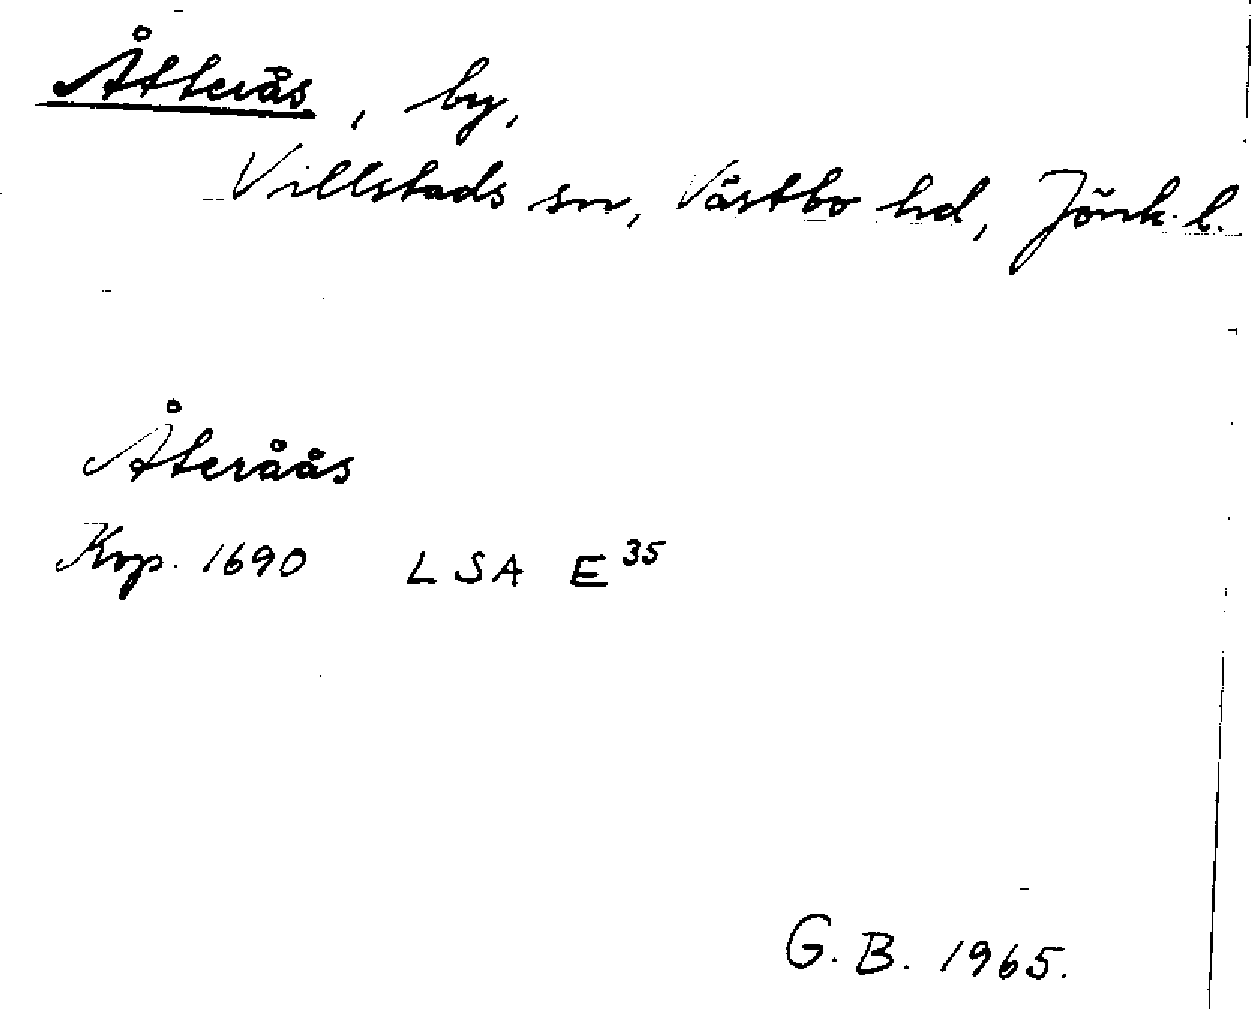 Åtterås, by,
Villstads sn, Västbo hd, Jönk. l.
Återåås
Kop. 1690 LSA E 35
G. B. 1965.